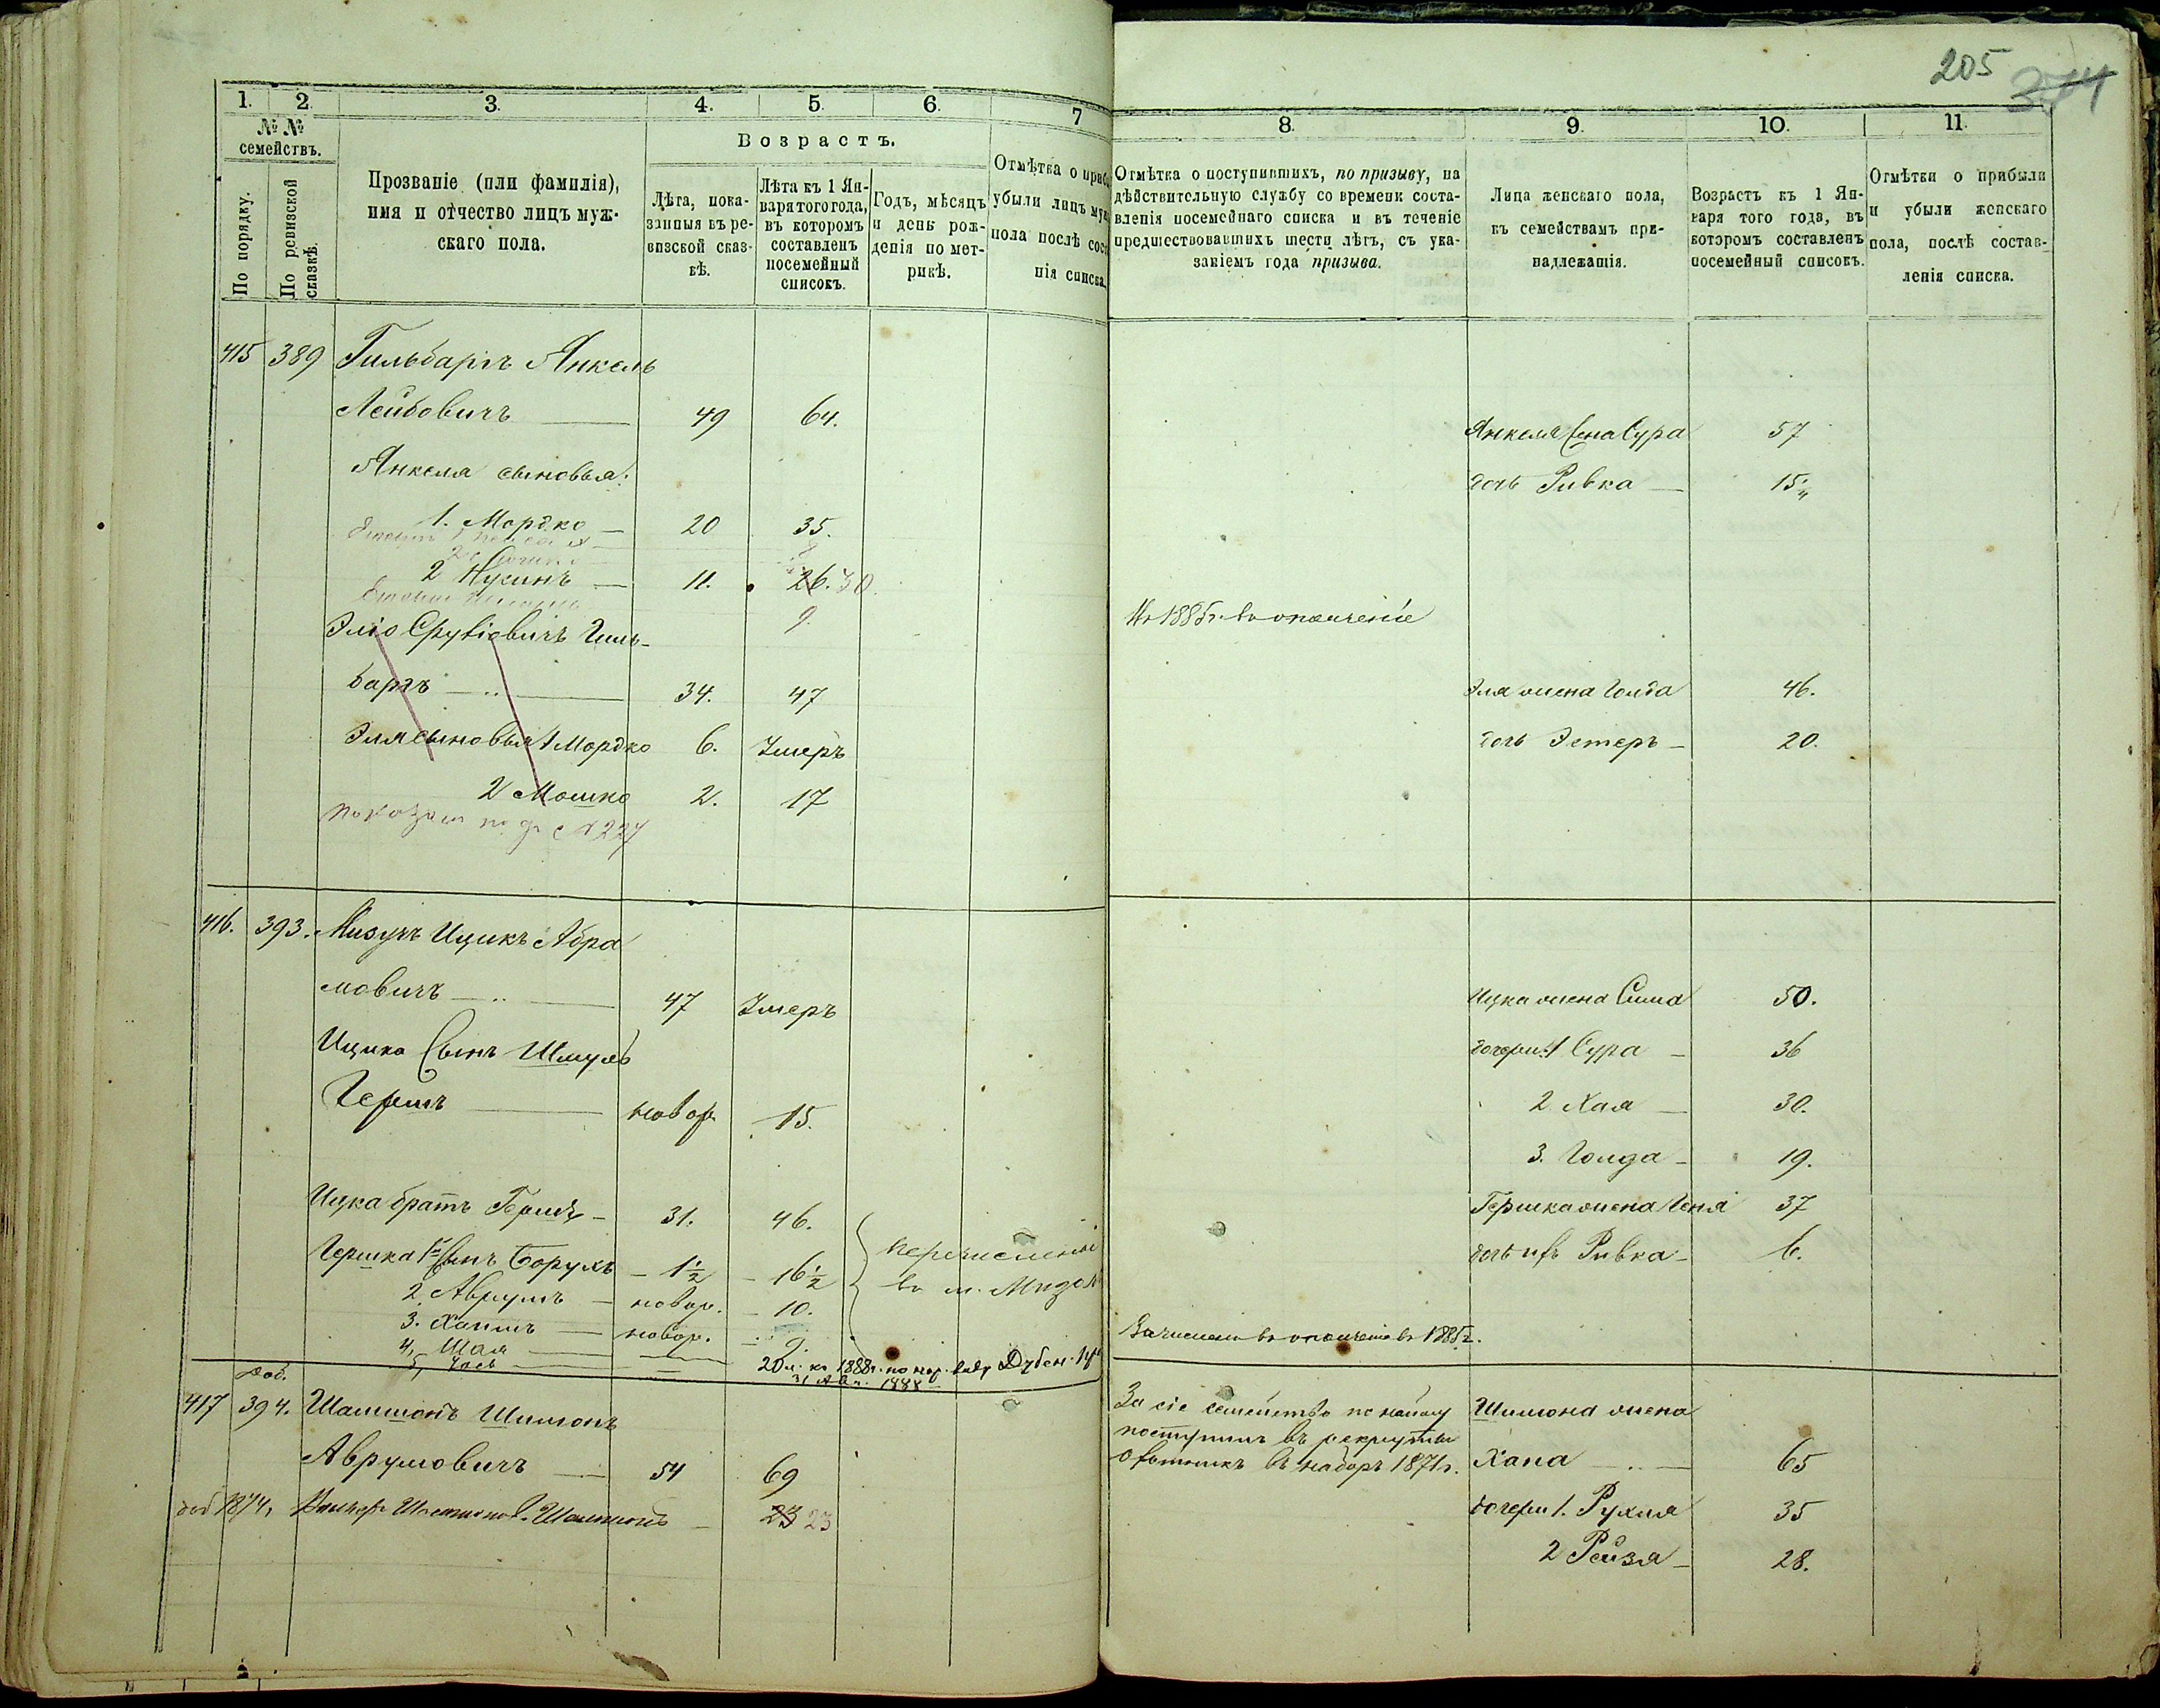 205
374
1. 2. 3. 4. 5. 6. 7
№ № семействъ.
По порядку.
По ревизской сказкѣ.
Прозваніе (или фамилія),
имя и отчество лицъ муж-
скаго пола.
Возрастъ.
Лѣта, пока-
занныя въ ре-
визской сказ-
кѣ.
Лѣта къ 1 Ян-
варя того года,
въ которомъ
составленъ
посемейный
списокъ.
Годъ, мѣсяцъ
и день рож-
денія по мет-
рикѣ.
Отмѣтка о приб
убыли лицъ муж
пола послѣ сост
нія списка.
8. 9. 10. 11.
Отмѣтка о поступившихъ, по призыву, на
дѣйствительную службу со времени соста-
вленія посемейнаго списка и въ теченіе
предшествовавшихъ шести лѣтъ, съ ука-
заніемъ года призыва.
Лица женскаго пола,
къ семействамъ при-
надлежащія.
Возрастъ къ 1 Ян-
варя того года, въ
которомъ составленъ
посемейный списокъ.
Отмѣтки о прибыли
и убыли женскаго
пола, послѣ состав-
ленія списка.
415 389 Гильбаргъ Янкель
Лейбовичъ 49 64.
Янкеля жена Сура 57
Янкеля сыновья:
дочь Ривка 15
1. Мордко 20 35.
2 Нусинъ 11. 26. 30
9.
Эліо Сруліовичъ Гиль-
1885 г. въ ополченіе
баргъ 34. 47
Эля жена Голда 46.
Эля сыновья 1 Мордко 6. Умеръ
дочь Эстеръ 20.
2 Мошко 2. 17
показан под № 227
416. 393. Мизучъ Ицикъ Абра
мовичъ 47 Умеръ
Ицка жена Сима 50.
Ицика Сынъ Шмуль
дочери: 1 Сура 36
Гершъ новор. 15.
2 Хая 30.
3. Голда 19.
Ицка братъ Гершъ 31. 46.
Гершка жена Геня 37
Гершка 1й Сынъ Борухъ 1½ 16½
дочь ихъ Ривка 6.
перечислены
въ м. Мизоч
2. Аврумъ новор. 10.
3. Хаимъ новор. 9.
4, Шая
Зачислен въ ополченіе въ 1885 г.
5,
20 л. къ 1888 г. по нар. виду Дубен.
31 1888
доб.
417 394. Шамшонъ Шимонъ
За сіе семейство по найму
Шимона жена
поступилъ въ рекруты
Аврумовичъ 54 69
охотникъ въ наборъ 1871 г.
Хана 65
доб 1874, Шамшонъ 23 23
дочери 1. Рухля 35
2 Рейзя 28.